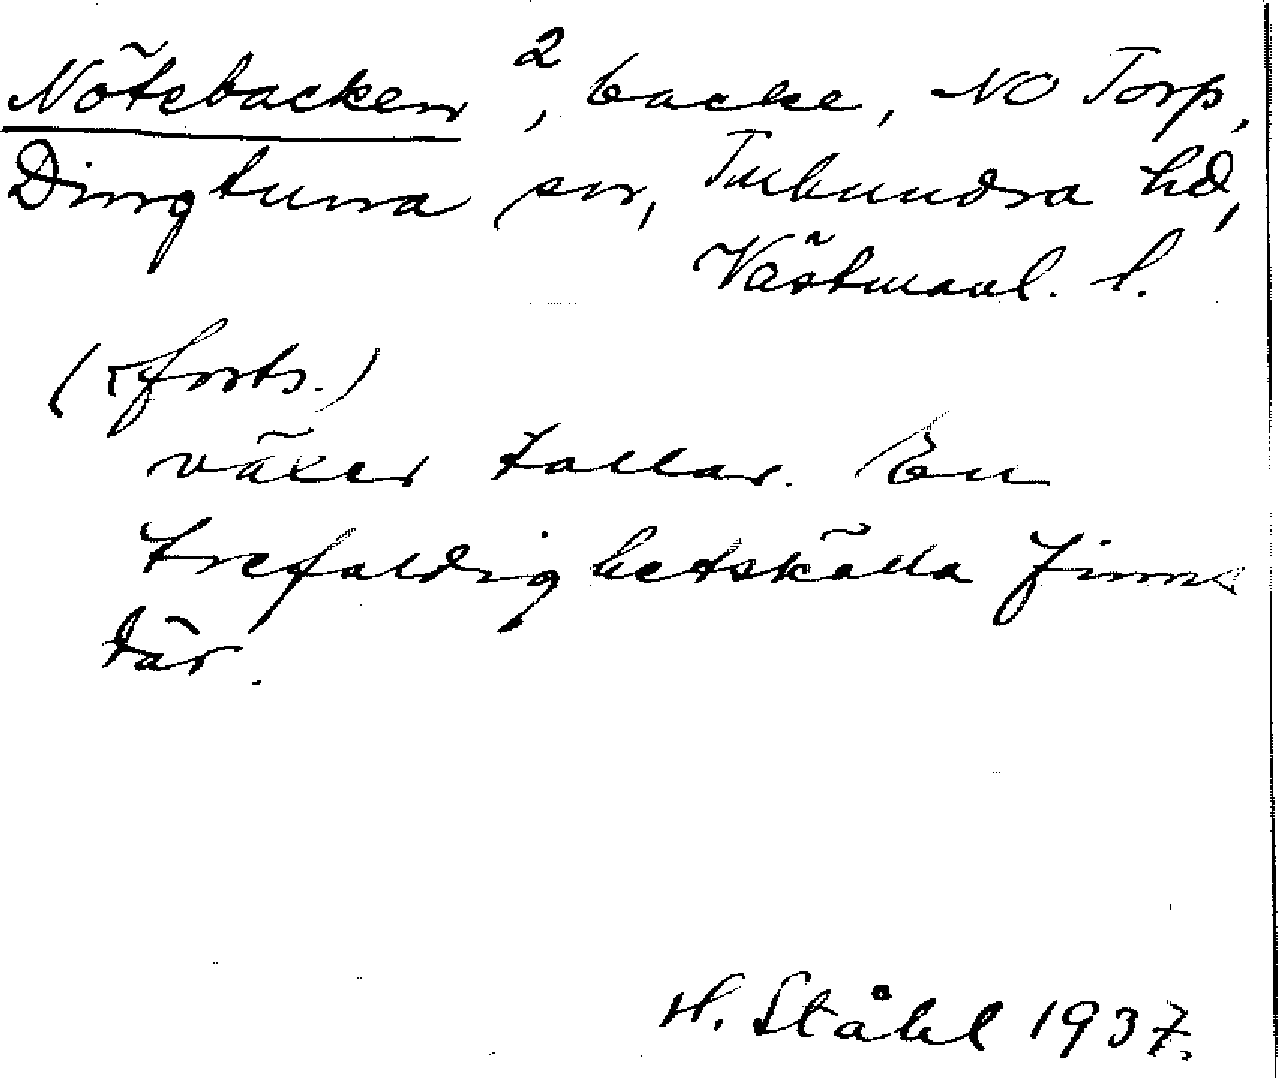 Nötebacken ², backe, NO Torp,
Dingtuna sn, Tuhundra hd,
Västmanl. l.
(forts.)
växer tallar. En
trefaldighetskälla finns
där.
H. Ståhl 1937.